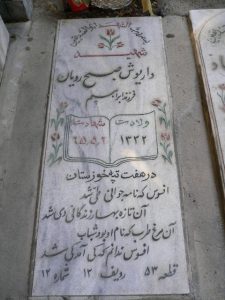 شهید
داریوش صبح رویان
فرزند ابراهیم
ولادت
۱۳۳۲
شهادت
۶۵،۵،۲
در هفت تپه خوزستان
افسوس که نامه جوانی طی شد
آن تازه بهار زندگانی دی شد
آن مرغ طرب که نام او بود شباب
افسوس ندانم که کی آمد کی شد
قطعه ۵۳ ردیف ۱۲ شماره ۱۲